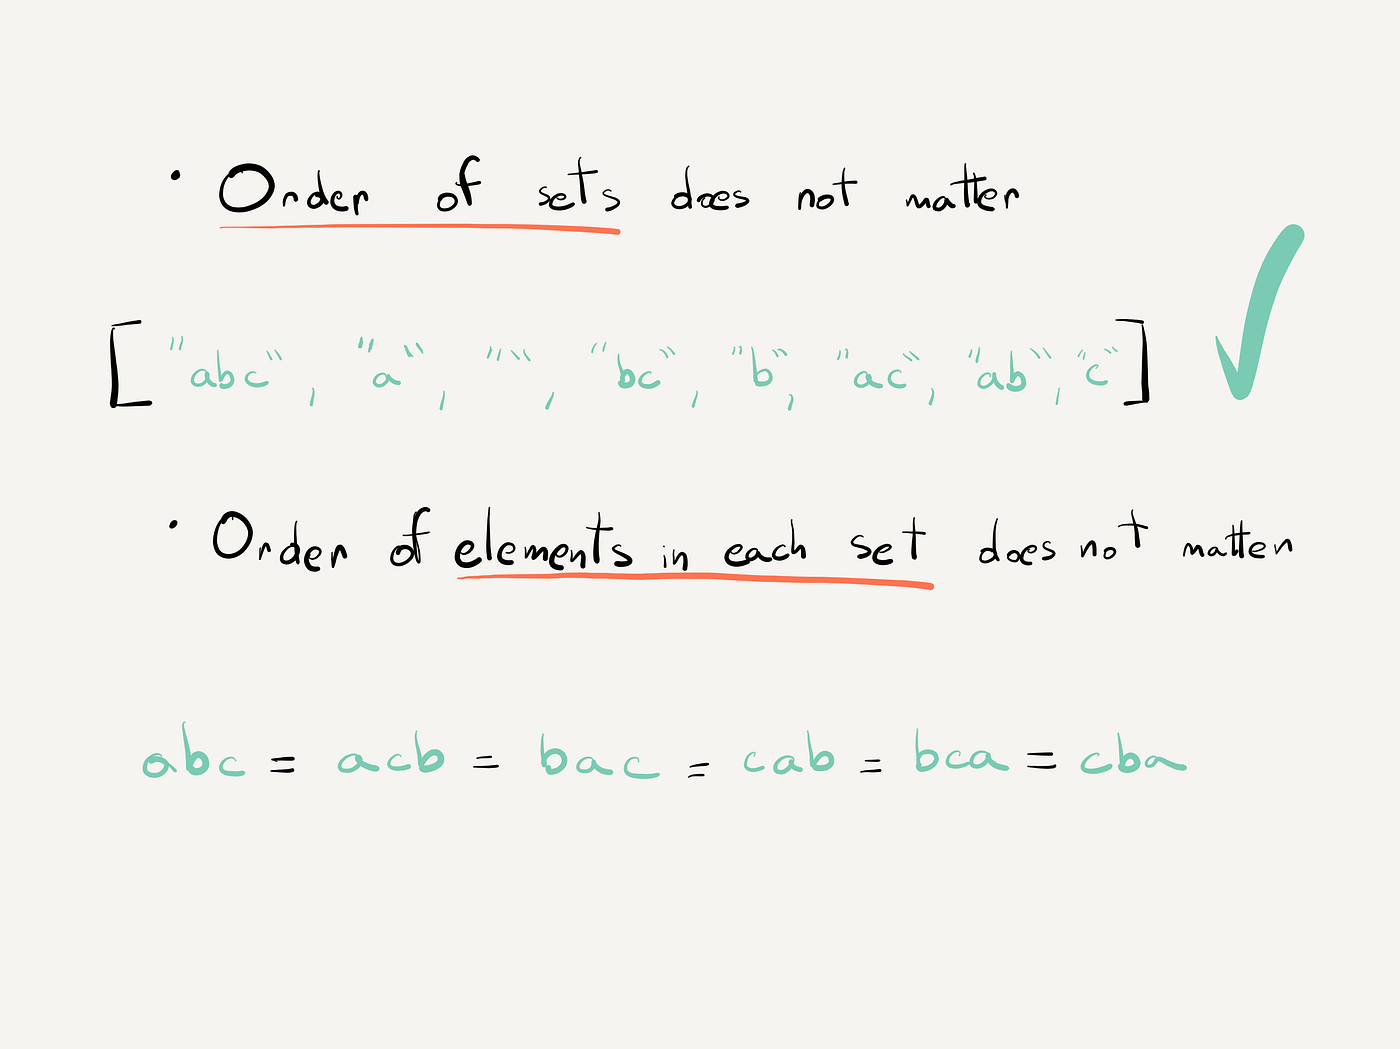 • Order of sets does not matter
["abc", "a", "", "bc", "b", "ac", "ab", "c"]
• Order of elements in each set does not matter
abc = acb = bac = cab = bca = cba